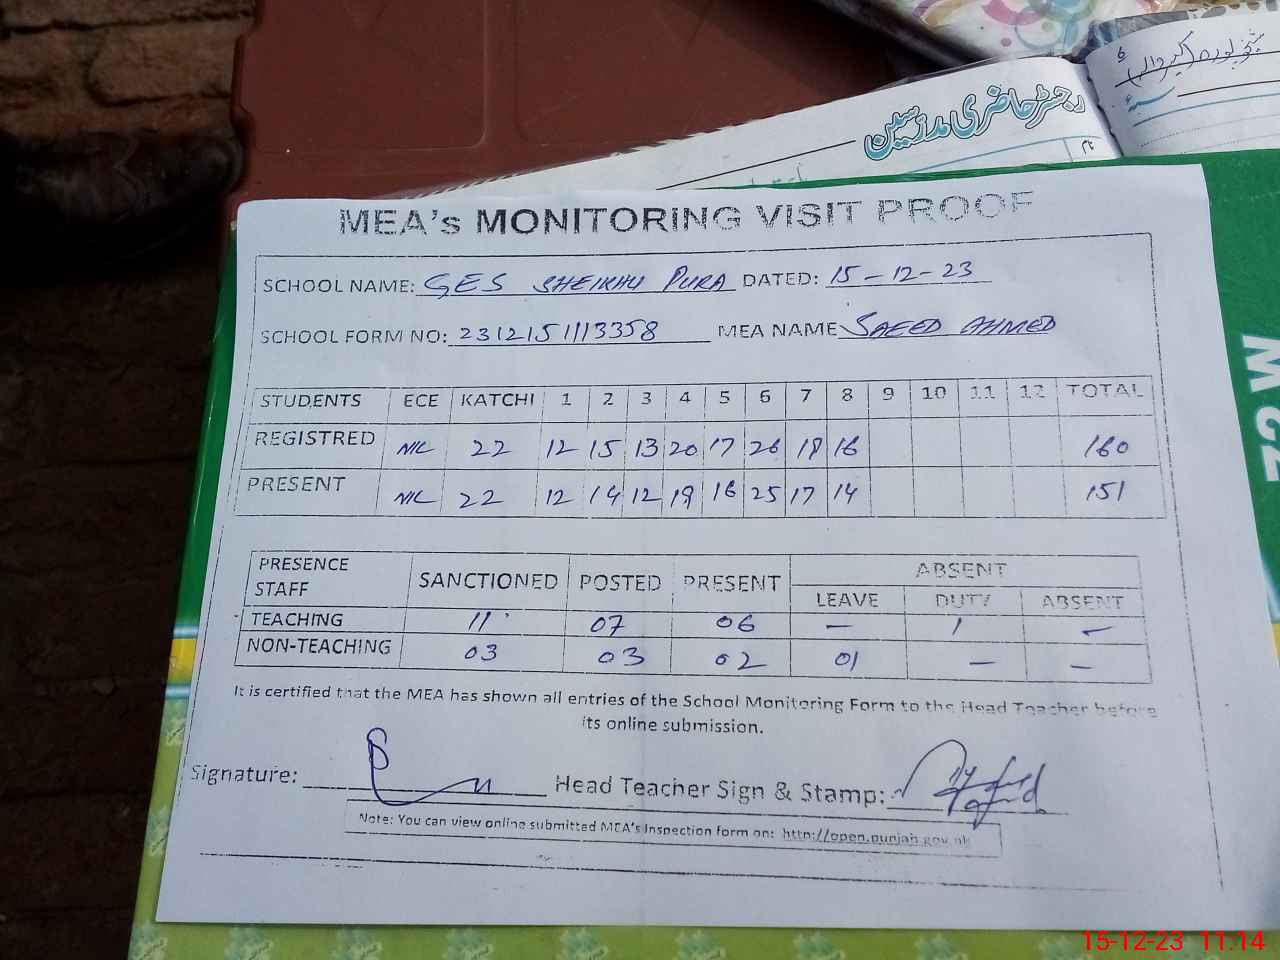 شیخوپورہ
رجسٹر حاضری مدرسین
نام
MEA's MONITORING VISIT PROOF
SCHOOL NAME: GES SHEIKHU PURA DATED: 15-12-23
SCHOOL FORM NO: 2312151113358 MEA NAME SAEED AHMED
STUDENTS ECE KATCHI 1 2 3 4 5 6 7 8 9 10 11 12 TOTAL
REGISTRED NIL 22 12 15 13 20 17 26 18 16 160
PRESENT NIL 22 12 14 12 19 16 25 17 14 151
PRESENCE STAFF SANCTIONED POSTED PRESENT ABSENT
LEAVE DUTY ABSENT
TEACHING 11 07 06 - 1 -
NON-TEACHING 03 03 02 01 - -
It is certified that the MEA has shown all entries of the School Monitoring Form to the Head Teacher before
its online submission.
Signature: Head Teacher Sign & Stamp:
Note: You can view online submitted MEA's Inspection form on: http://open.punjab.gov.pk
15-12-23 11.14